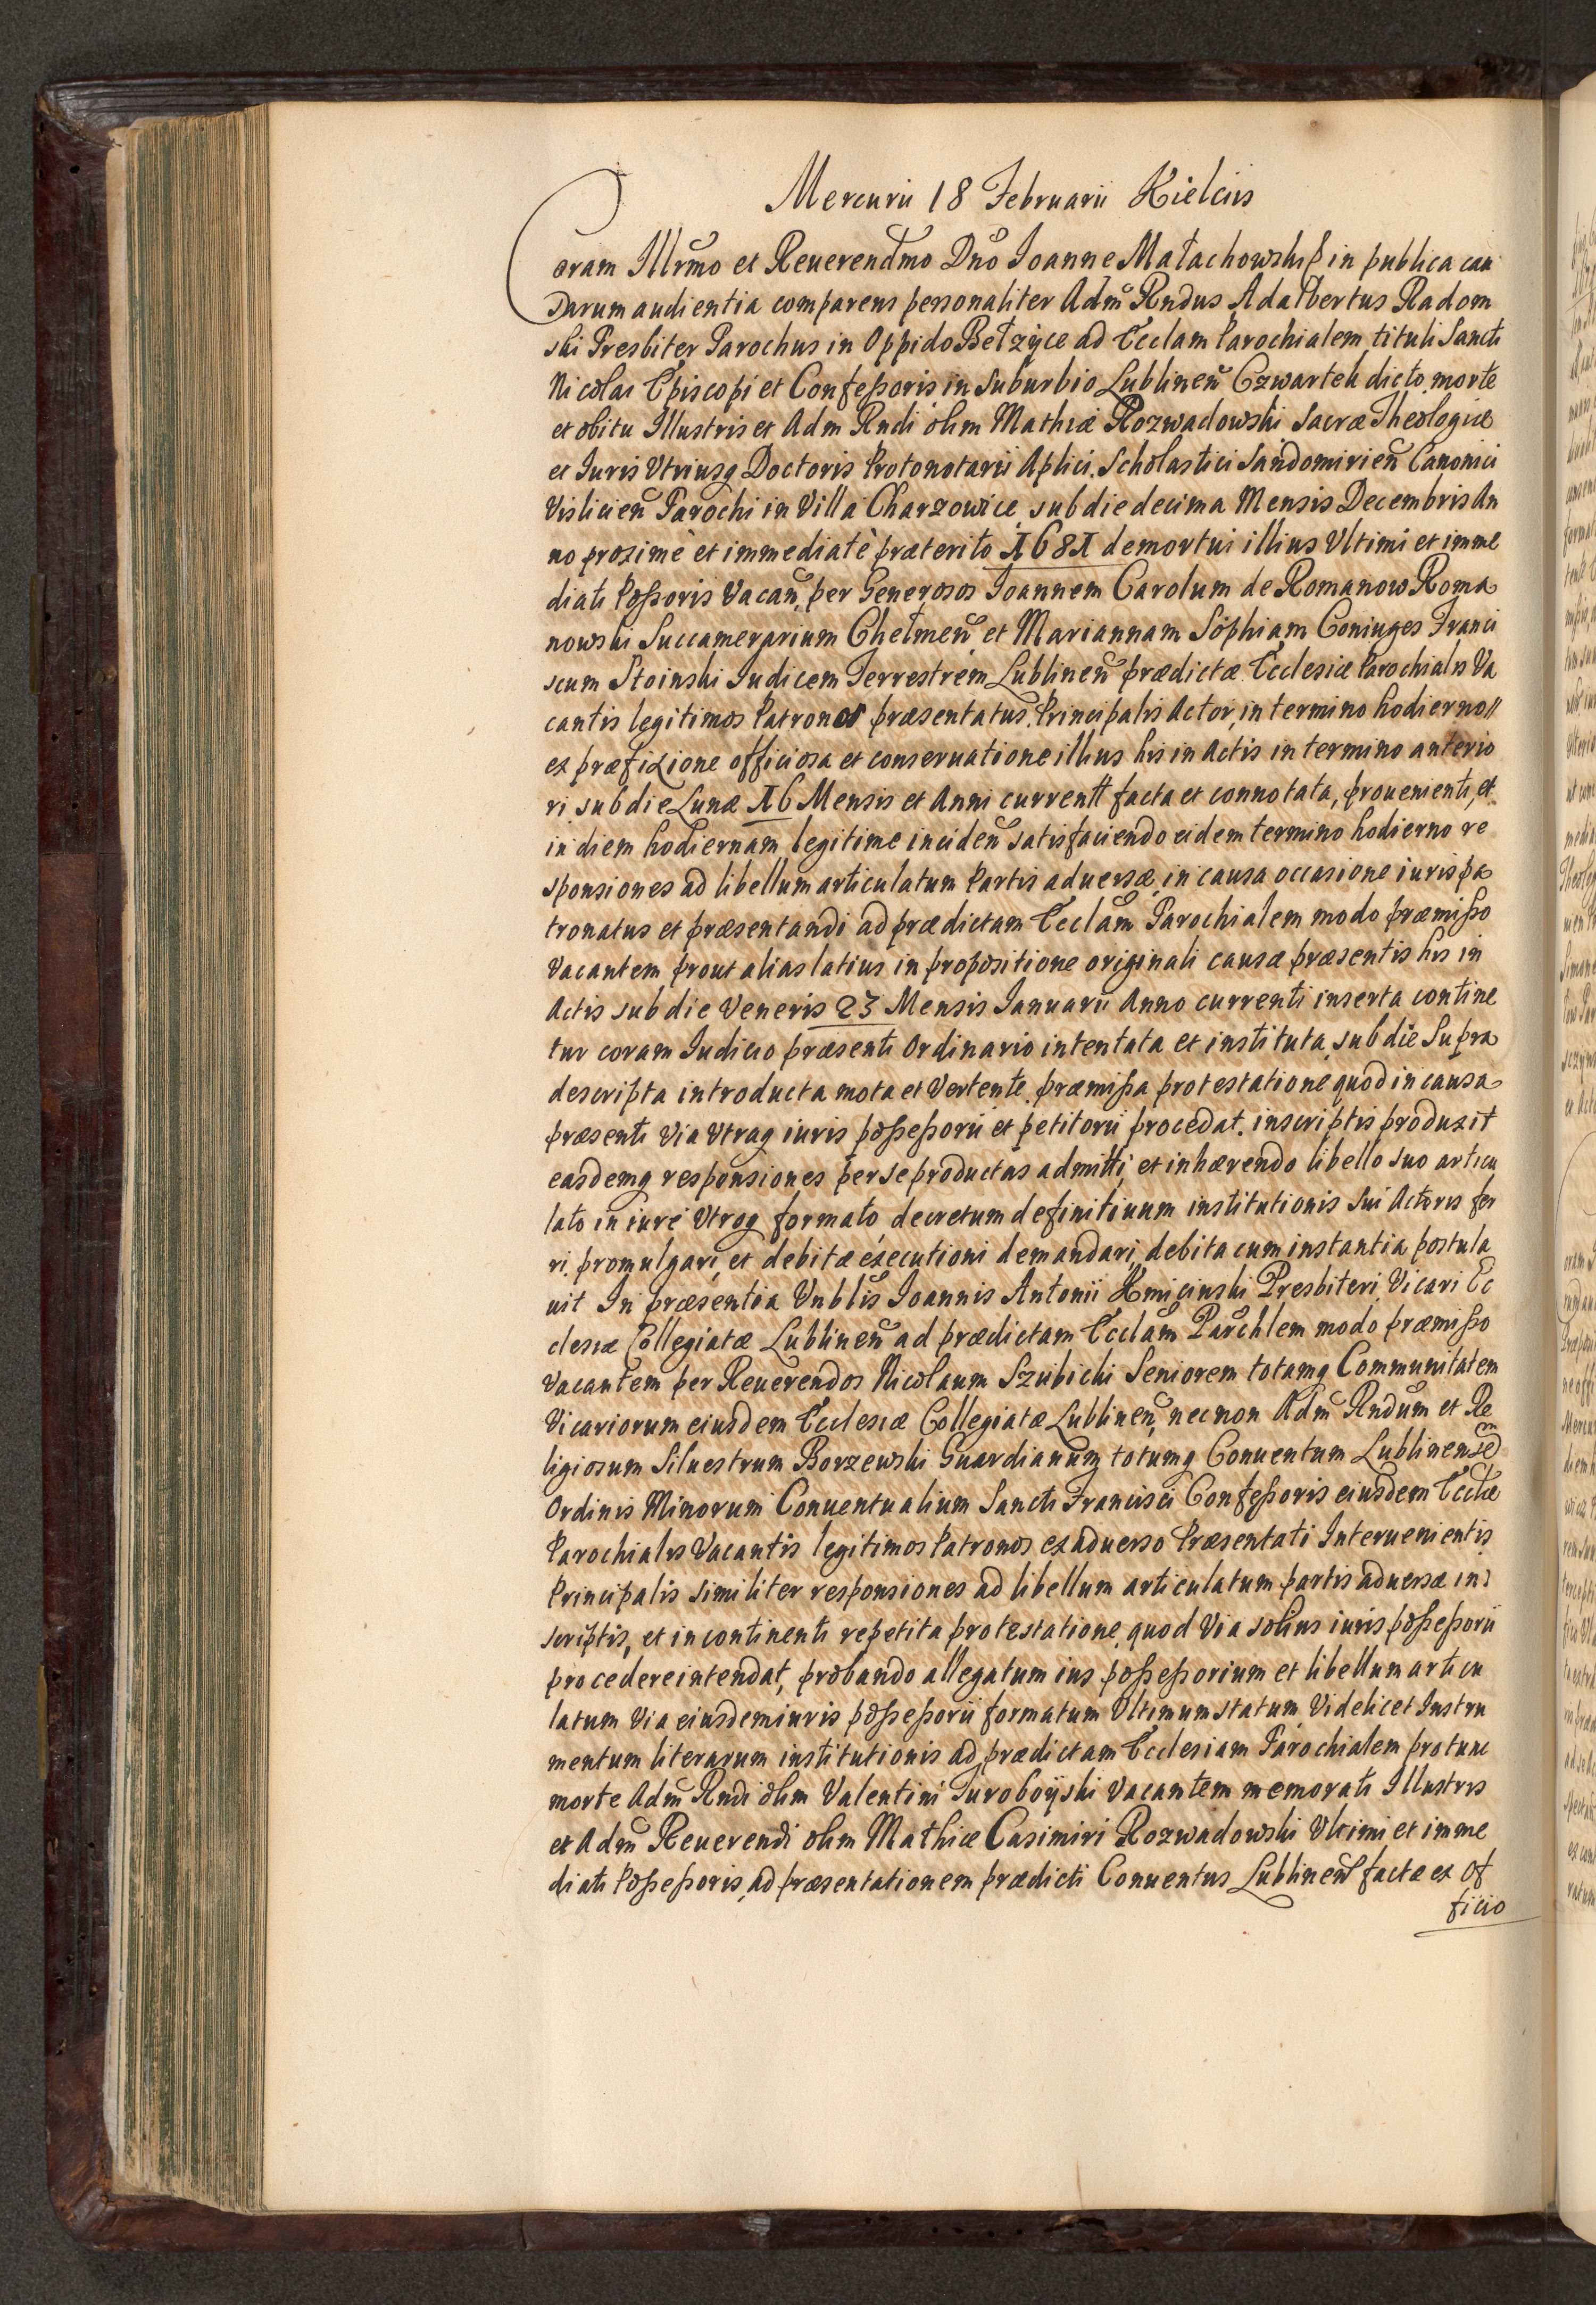 Mercurii 18 Februarii Kielciis
Coram Illr̃mo et Reuerendmo Dño Joanne Małachowski in publica cau
sarum audientia comparens personaliter Adm̃ Rndus Adalbertus Radom
ski Presbiter Parochus in Oppido Bełzÿce ad Ecclam Parochialem tituli Sancti
Nicolai Episcopi et Confeßoris in suburbio Lublineñ Czwartek dicto morte
et obitu Illustris et Adm Rndi olim Mathiæ Rozwadowski Sacræ Theologiæ
et Juris Vtriusq Doctoris Protonotarii Aplici. Scholastici Sandomirieñ Canonici
Vislicieñ Parochi in Villa Charzowice sub die decima Mensis Decembris An
no proximè et immediatè præterito 1681 demortui illius Vltimi et imme
diati Poßoris Vacañ, per Generosos Joannem Carolum de Romanow Roma
nowski Succamerarium Chełmeñ et Mariannam Sophiam Coniuges Franci
scum Stoinski Iudicem Terrestrem Lublineñ prædictæ Ecclesiæ Parochialis Va
cantis legitimos Patronos præsentatus. Principalis Actor, in termino hodierno
ex præfixione officiosa et conseruatione illius his in Actis in termino anterio
ri sub die Lunæ 16 Mensis et Anni currentt facta et connotata, prouenienti, et
in diem hodiernam legitime incideñ satisfaciendo eidem termino hodierno re
sponsiones ad libellum articulatum Partis aduersæ in causa occasione iuris pa
tronatus et præsentandi ad prædictam Ecclam̃ Parochialem modo præmißo
Vacantem prout alias latius in propositione originali causæ præsentis his in
Actis sub die Veneris 23 Mensis Januarii Anno currenti inserta contine
tur coram Iudicio præsenti Ordinario intentata et instituta, sub die Supra
descripta introducta mota et Vertente. præmißa protestatione quod in causa
præsenti Via Vtraq iuris poßeßorii et petitorii procedat. inscriptis produxit
easdemq responsiones per se productas admitti, et inhærendo libello suo articu
lato in iure Vtroq formato, decretum definitiuum institutionis sui Actoris fer
ri. promulgari, et debitæ executioni demandari, debita cum instantia postula
uit In præsentia Vnblis̃ Joannis Antonii Kmicinski Presbiteri Vicarii Ec
clesiæ Collegiatæ Lublineñ ad prædictam Ecclam̃ Parchlem modo præmißo
Vacantem per Reuerendos Nicolaum Szubicki Seniorem totamq Communitatem
Vicariorum eiusdem Ecclesiæ Collegiatæ Lublineñ, necnon Adm̃ Rndum̃ et Re
ligiosum Siluestrum Borzewski Guardianum totumq Conuentum Lublinensem
Ordinis Minorum Conuentualium Sancti Francisci Confeßoris eiusdem Eccliæ
Parochialis Vacantis legitimos Patronos ex aduerso Præsentati Interuenientis
Principalis similiter responsiones ad libellum articulatum partis aduersæ in
scriptis, et in continenti repetita protestatione, quod Via solius iuris poßeßorii
procedere intendat, probando allegatum ius poßeßorium et libellum articu
latum Via eiusdem iuris poßeßorii formatum Vltimum statum Videlicet Instru
mentum literarum institutionis ad prædictam Ecclesiam Parochialem pro tunc
morte Adm̃ Rndi olim Valentini Turoboÿski Vacantem memorati Illustris
et Adm̃ Reuerendi olim Mathiæ Casimiri Rozwadowski Vltimi et imme
diati Poßeßoris, ad præsentationem prædicti Conuentus Lublineñ factæ ex Of
ficio